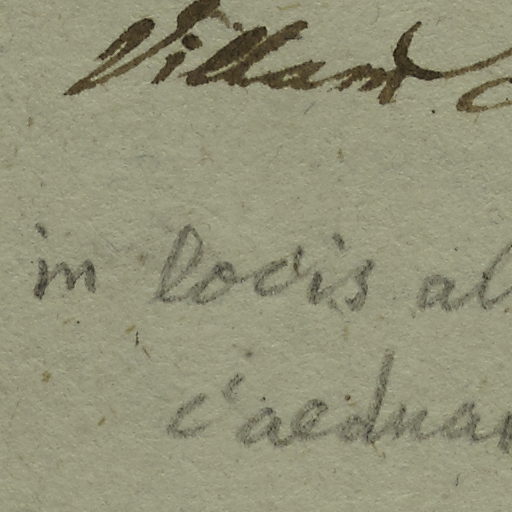 Villard
in locis al
c'aeduar